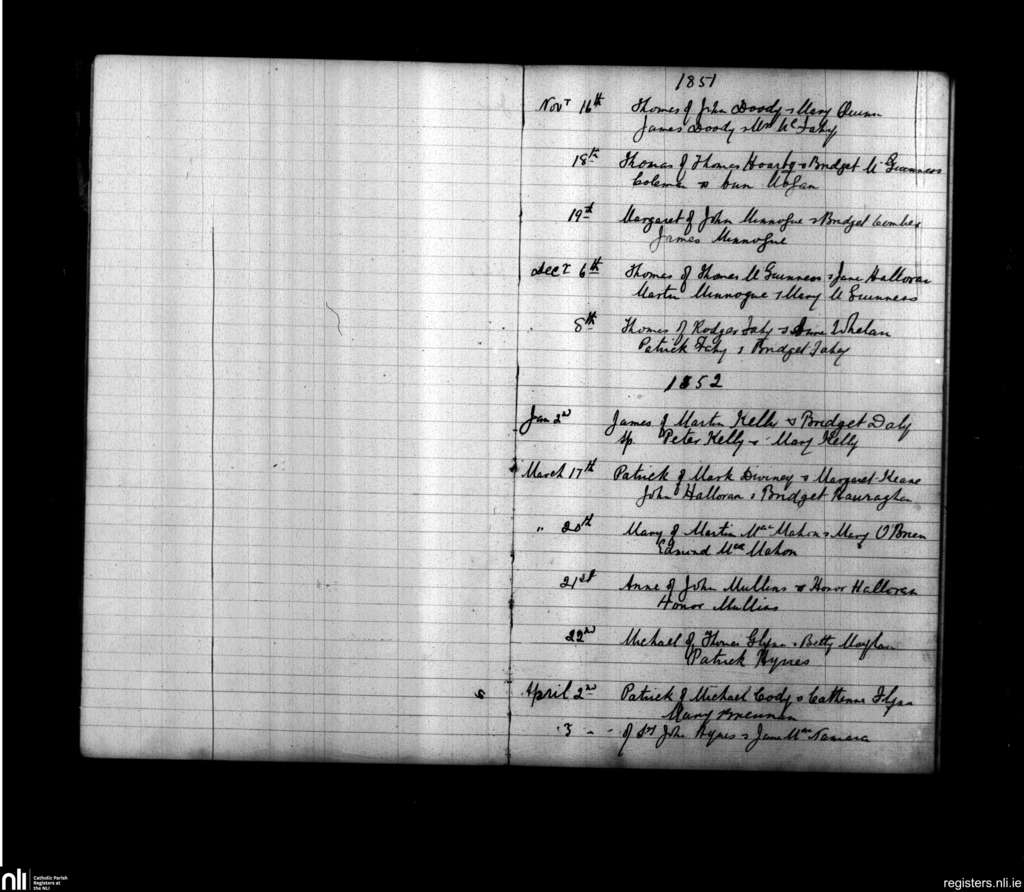 1851
Novr 16th Thomas of John Doody & Mary Quinn
James Doody & Mrs Mc Fahy
18th Thomas of Thomas Hoarty & Bridget Mc Guinness
Coleman & Ann
19th Margaret of John Minnogue & Bridget Comber
James Minnogue
Decr 6th Thomas of Thomas Mc Guinness & Jane Halloran
Martin Minnogue & Mary Mc Guinness
8th Thomas of Rodger Fahy & Anne Whelan
Patrick Fahy & Bridget Fahey
1852
Jan 2nd James of Martin Kelly & Bridget Daly
sp. Peter Kelly & Mary Kelly
March 17th Patrick of Mark Diviney & Margaret Keane
John Halloran & Bridget
" 20th Mary of Martin Mac Mahon & Mary O'Brien
Edmund Mac Mahon
21st Anne of John Mullins & Honor Halloran
Honor Mullins
22nd Michael of Thomas Glynn & Betty
Patrick Hynes
April 2nd Patrick of Michael Cody & Catherine Flynn
Mary Brennan
3 " " of John Hynes & Jane Mac Namara
nli
Catholic Parish
Registers at
the NLI
registers.nli.ie